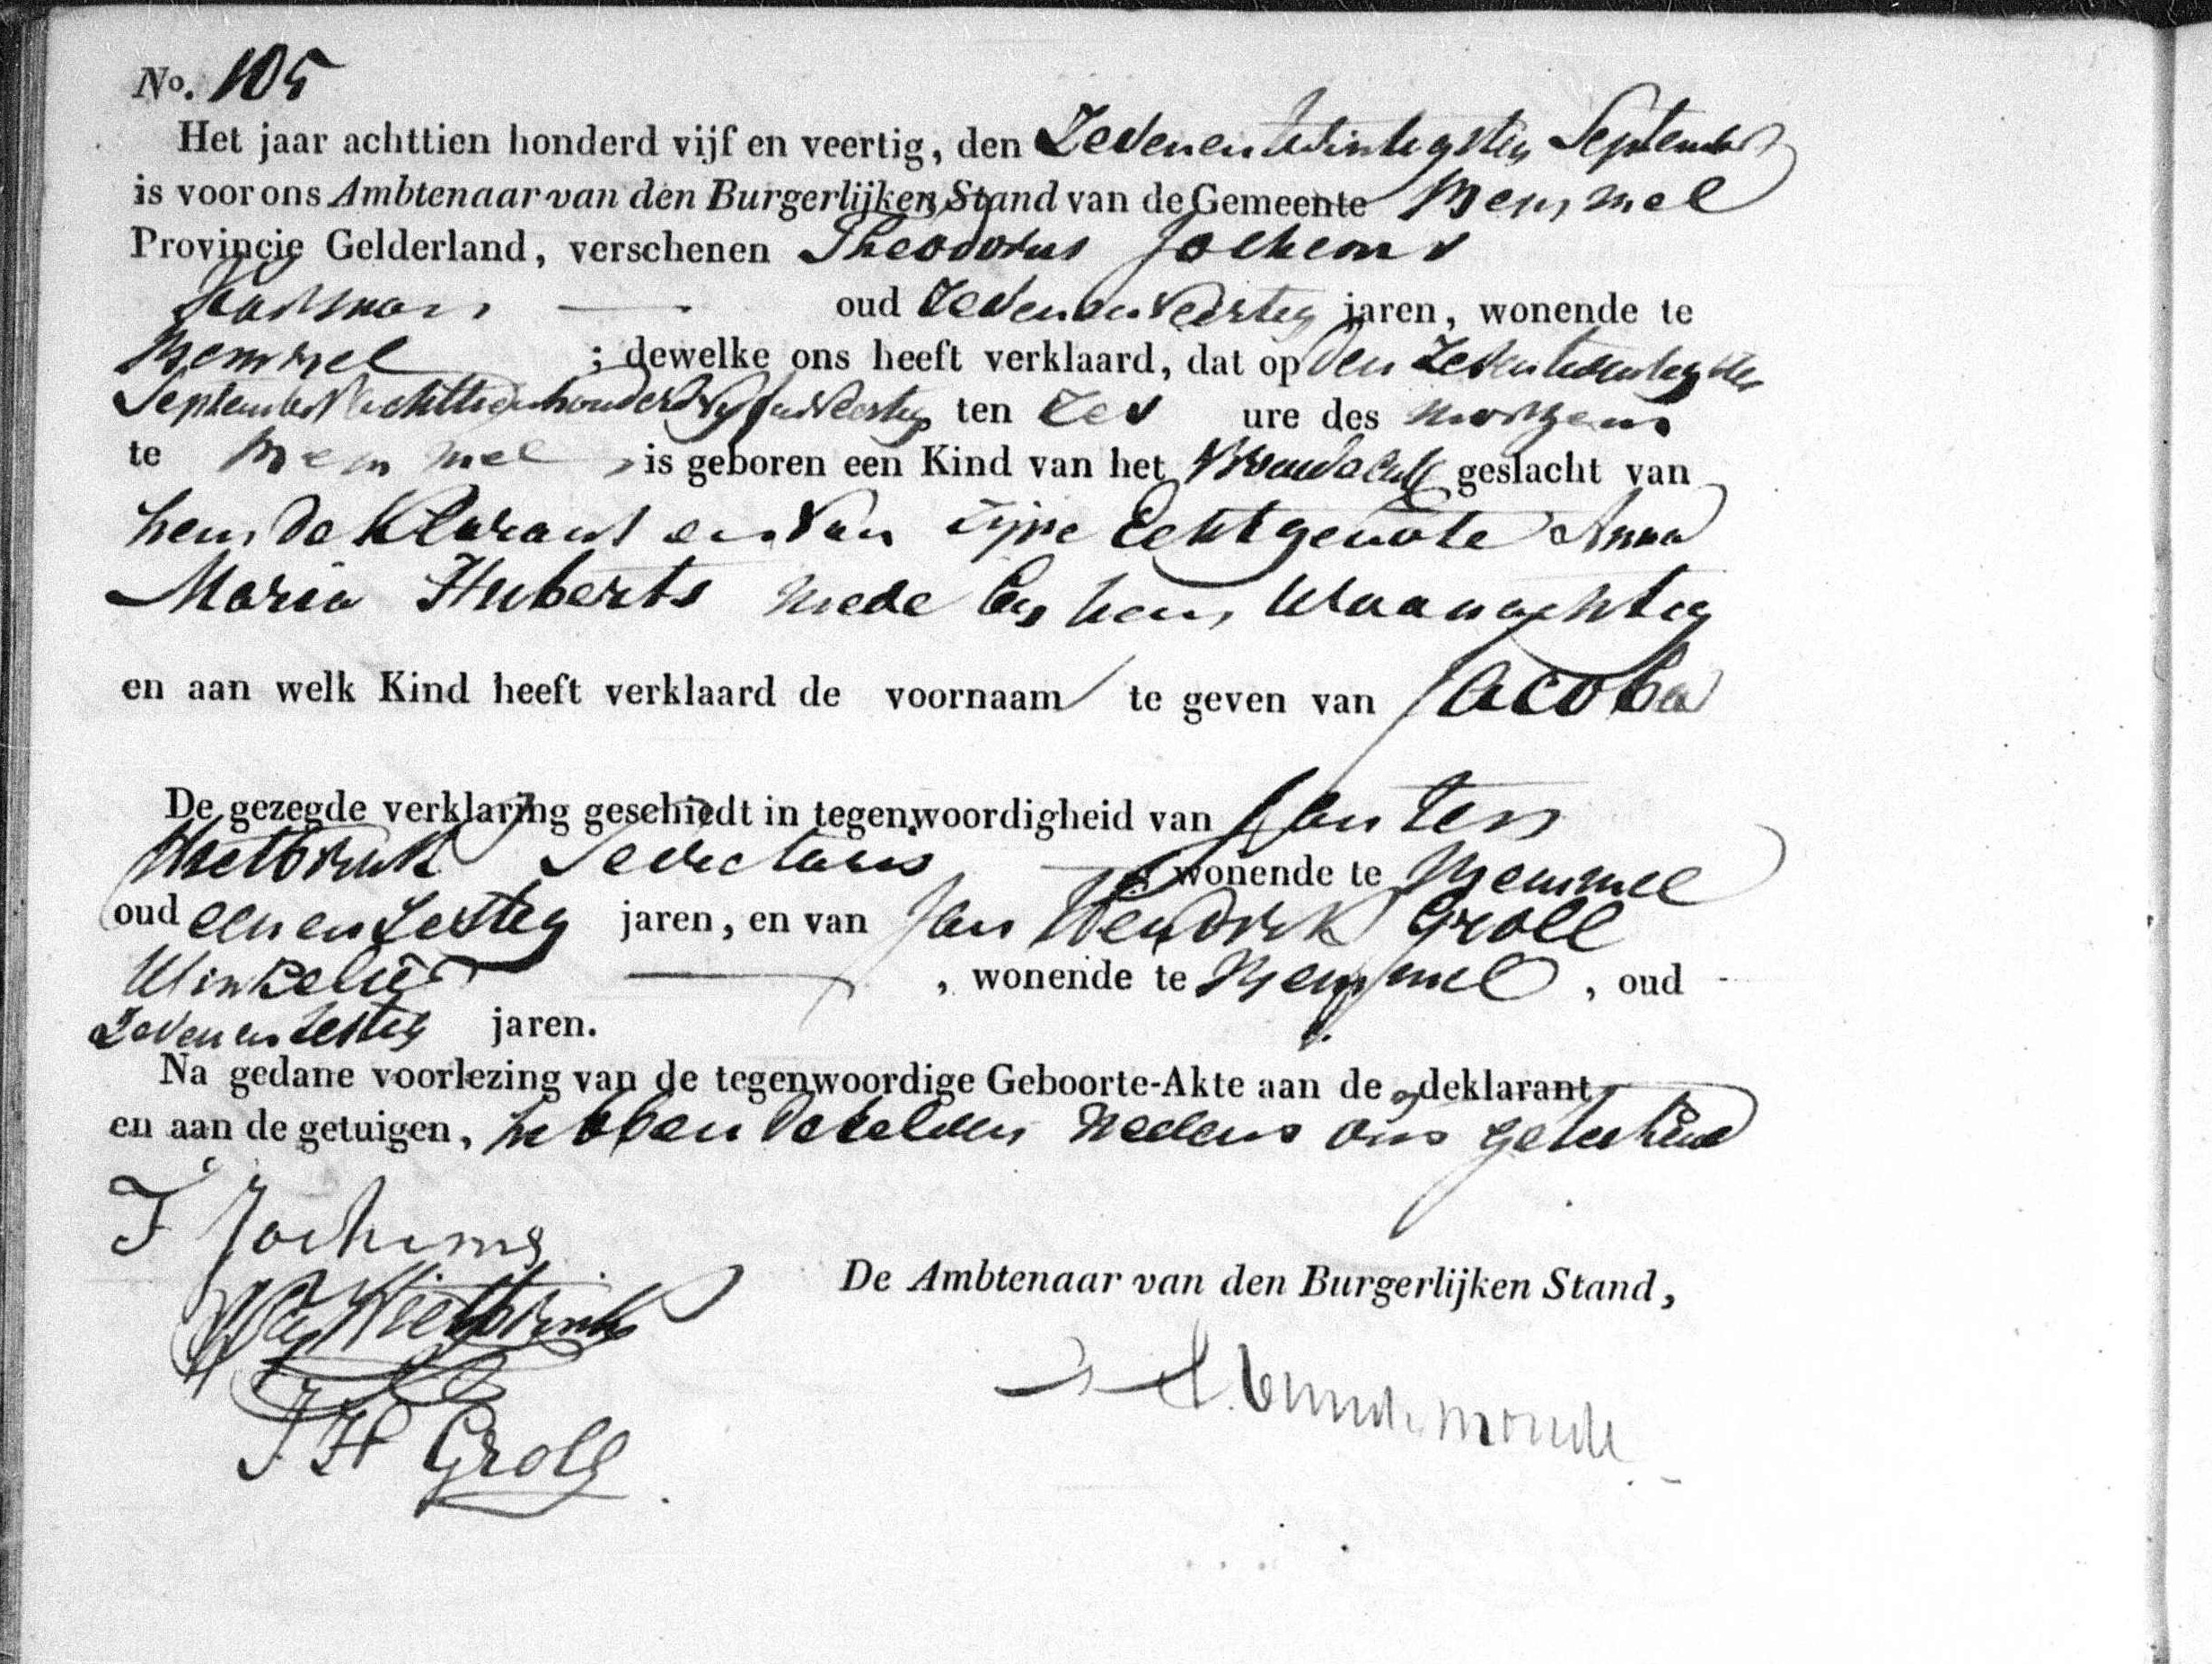 No. 105
Het jaar achttien honderd vijf en veertig, den Zevenentwintigsten September
is voor ons Ambtenaar van den Burgerlijken Stand van de Gemeente Bemmel
Provincie Gelderland, verschenen Theodorus Jochems
oud Zevenenveertig jaren, wonende te
Bemmel ; dewelke ons heeft verklaard, dat op den Zevenentwintigsten
September achttienhonderd vyfenveertig ten Zes ure des morgens
te Bemmel, is geboren een Kind van het Vrouwelyk geslacht van
hem deklarant en van zijne Echtgenote Anna
Maria Huberts mede by hem Woonachtig
en aan welk Kind heeft verklaard de voornaam te geven van Jacoba
De gezegde verklaring geschiedt in tegenwoordigheid van Jan ten
Hietbrink Secretaris wonende te Bemmel
oud eenenzestig jaren, en van Jan Hendrik Groll
Winkelier, wonende te Bemmel, oud
Zevenenzestig jaren.
Na gedane voorlezing van de tegenwoordige Geboorte-Akte aan de deklarant
en aan de getuigen, hebben dezelven nevens ons getekend
T Jochems
Hietbrink
De Ambtenaar van den Burgerlijken Stand,
J H Groll